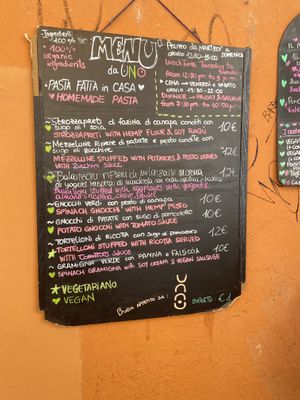 Ingredienti
100% BIO
100%
organic
ingredients
MENU
da UNO
PASTA FATTA in CASA
HOMEMADE PASTA
DOMENICA
LUNCH TIME TUESDAY to
SUNDAY
CENA
VENERDÌ e SABATO
ORARIO 19:30 - 22:00
DINNER
FRIDAY & SATURDAY
from 7:30 pm to 10:00 pm
~ STROZZAPRETI di farina di canapa conditi con
sugo di soia 10€
STROZZAPRETI WITH HEMP FLOUR & SOY RAGÙ
~ MEZZELUNE ripiene di patate e pesto condite con
sugo di zucchine 12€
MEZZELUNE STUFFED WITH POTATOES & PESTO SERVED
WITH Zucchini SAUCE
~ Balanzoni ripieni di melanzane
12€
~ GNOCCHI verdi con pesto di canapa 10€
SPINACH GNOCCHI WITH HEMP PESTO
~ GNOCCHI di PATATE con sugo di pomodoro 10€
POTATO GNOCCHI WITH TOMATO SAUCE
~ TORTELLONI di RICOTTA con sugo di pomodoro 12€
TORTELLONI STUFFED WITH RICOTTA SERVED
WITH TOMATOES SAUCE
~ GRAMIGNA VERDE con PANNA e SALSICCIA 10€
SPINACH GRAMIGNA WITH SOY CREAM & VEGAN SAUSAGE
VEGETARIANO
VEGAN
BUON APPETITO DA:
UNO
COPERTO €1